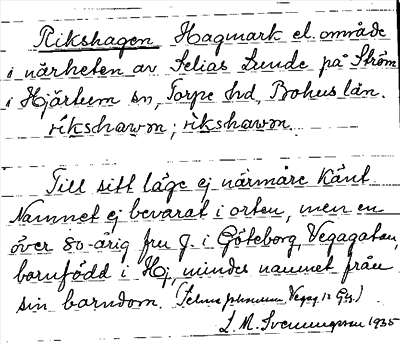 Rikshagen Hagmark el. område
i närheten av Selias Lunde på Ström
i Hjärtum sn, Torpe hd, Bohuslän.
rikshawən; rikshawən.
Till sitt läge ej närmare känt.
Namnet ej bevarat i orten, men en
över 80-årig fru J. i Göteborg, Vegagatan,
barnfödd i Hj, mindes namnet från
sin barndom.
L. M. Svenungsson 1935